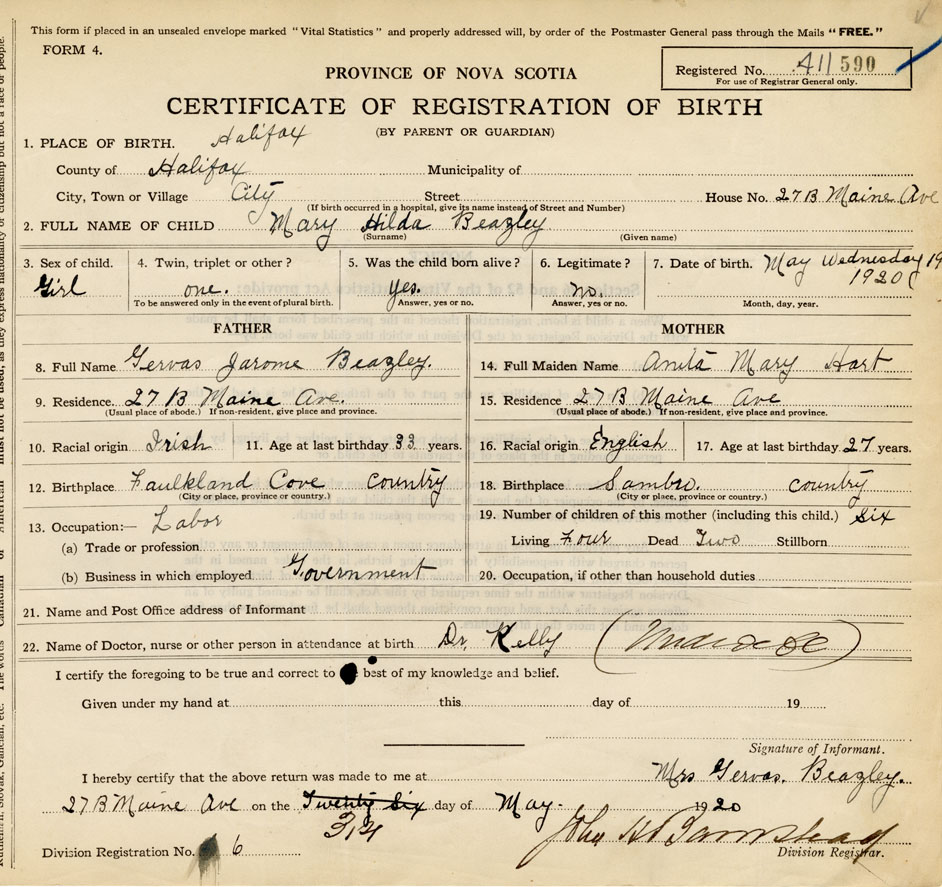 This form if placed in an unsealed envelope marked "Vital Statistics" and properly addressed will, by order of the Postmaster General pass through the Mails "FREE."
FORM 4.
Registered No. 411 590
For use of Registrar General only.
PROVINCE OF NOVA SCOTIA
CERTIFICATE OF REGISTRATION OF BIRTH
(BY PARENT OR GUARDIAN)
1. PLACE OF BIRTH. Halifax
County of Halifax Municipality of
City, Town or Village City Street House No. 27B Maine Ave
(If birth occurred in a hospital, give its name instead of Street and Number)
2. FULL NAME OF CHILD Mary Hilda Beazley
(Surname) (Given name)
3. Sex of child. 4. Twin, triplet or other? 5. Was the child born alive? 6. Legitimate? 7. Date of birth. May Wednesday 19
Girl one. Yes. No. 1920
To be answered only in the event of plural birth. Answer, yes or no. Answer, yes or no. Month, day, year.
FATHER MOTHER
8. Full Name Gervas Jarome Beazley. 14. Full Maiden Name Anita Mary Hart
9. Residence. 27B Maine Ave. 15. Residence 27B Maine Ave
(Usual place of abode.) If non-resident, give place and province. (Usual place of abode.) If non-resident, give place and province.
10. Racial origin Irish 11. Age at last birthday 33 years. 16. Racial origin English 17. Age at last birthday 27 years.
12. Birthplace Faulkland Cove country 18. Birthplace Sambro. country
(City or place, province or country.) (City or place, province or country.)
13. Occupation:— Labor 19. Number of children of this mother (including this child.) Six
(a) Trade or profession Living Four Dead Two Stillborn
(b) Business in which employed. Government 20. Occupation, if other than household duties
21. Name and Post Office address of Informant
22. Name of Doctor, nurse or other person in attendance at birth Dr. Kelly
I certify the foregoing to be true and correct to best of my knowledge and belief.
Given under my hand at this day of 19
Signature of Informant.
I hereby certify that the above return was made to me at Mrs Gervas. Beazley.
27B Maine Ave on the Twenty Six day of May 1920
John H Barnstead
Division Registration No. 6 Division Registrar.